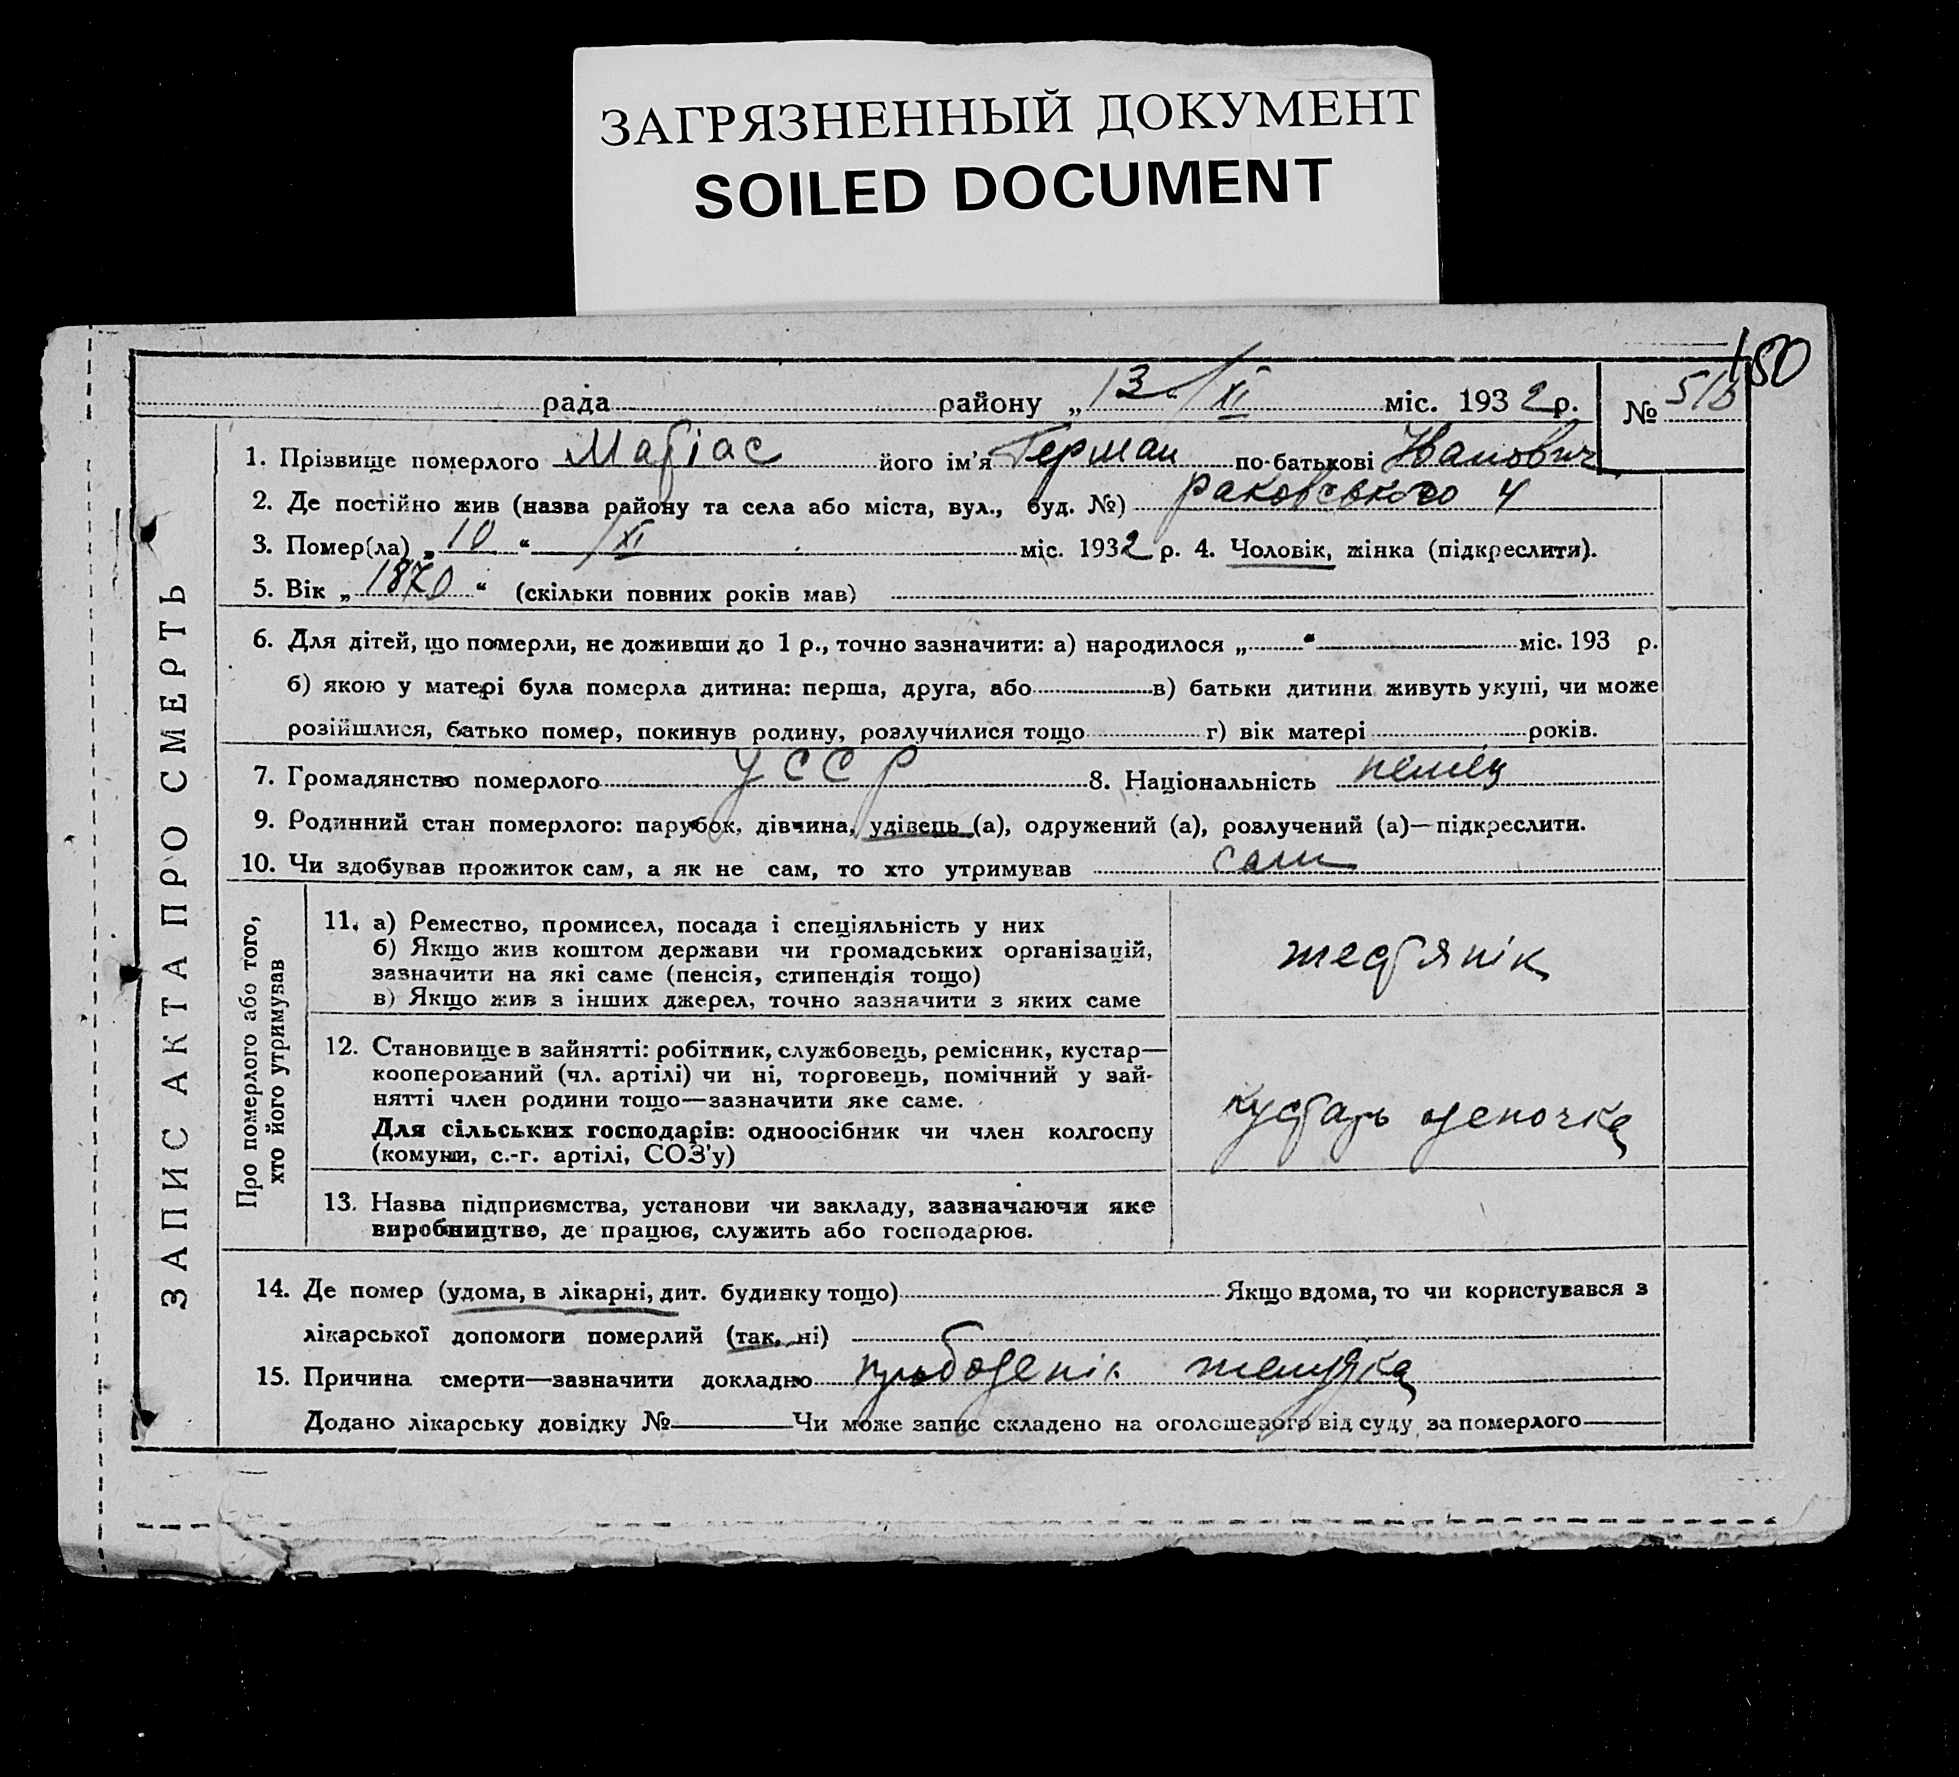 ЗАГРЯЗНЕННЫЙ ДОКУМЕНТ
SOILED DOCUMENT
150
рада району „13 / XI міс. 1932 р. № 516
1. Прізвище померлого Матіас його ім'я Герман по-батькові Іванович
2. Де постійно жив (назва району та села або міста, вул., буд. №) Раковського 4
3. Помер(ла) „10“ / XI міс. 1932 р. 4. Чоловік, жінка (підкреслити).
5. Вік „1870“ (скільки повних років мав)
6. Для дітей, що померли, не доживши до 1 р., точно зазначити: а) народилося „ “ міс. 193 р.
б) якою у матері була померла дитина: перша, друга, або в) батьки дитини живуть укупі, чи може
розійшлися, батько помер, покинув родину, розлучилися тощо г) вік матері років.
7. Громадянство померлого УССР 8. Національність немец
9. Родинний стан померлого: парубок, дівчина, удівець (а), одружений (а), розлучений (а)—підкреслити.
10. Чи здобував прожиток сам, а як не сам, то хто утримував сам
ЗАПИС АКТА ПРО СМЕРТЬ
Про померлого або того,
хто його утримував
11. а) Ремество, промисел, посада і спеціяльність у них
б) Якщо жив коштом держави чи громадських організацій,
зазначити на які саме (пенсія, стипендія тощо)
в) Якщо жив з інших джерел, точно зазначити з яких саме
жестянік
12. Становище в зайнятті: робітник, службовець, ремісник, кустар—
кооперований (чл. артілі) чи ні, торговець, помічний у зай-
нятті член родини тощо—зазначити яке саме.
Для сільських господарів: одноосібник чи член колгоспу
(комуни, с.-г. артілі, СОЗ'у)
кустарь оденочка
13. Назва підприємства, установи чи закладу, зазначаючи яке
виробництво, де працює, служить або господарює.
14. Де помер (удома, в лікарні, дит. будинку тощо) Якщо вдома, то чи користувався з
лікарської допомоги померлий (так, ні)
15. Причина смерти—зазначити докладно желудка
Додано лікарську довідку № Чи може запис складено на оголошеного від суду за померлого